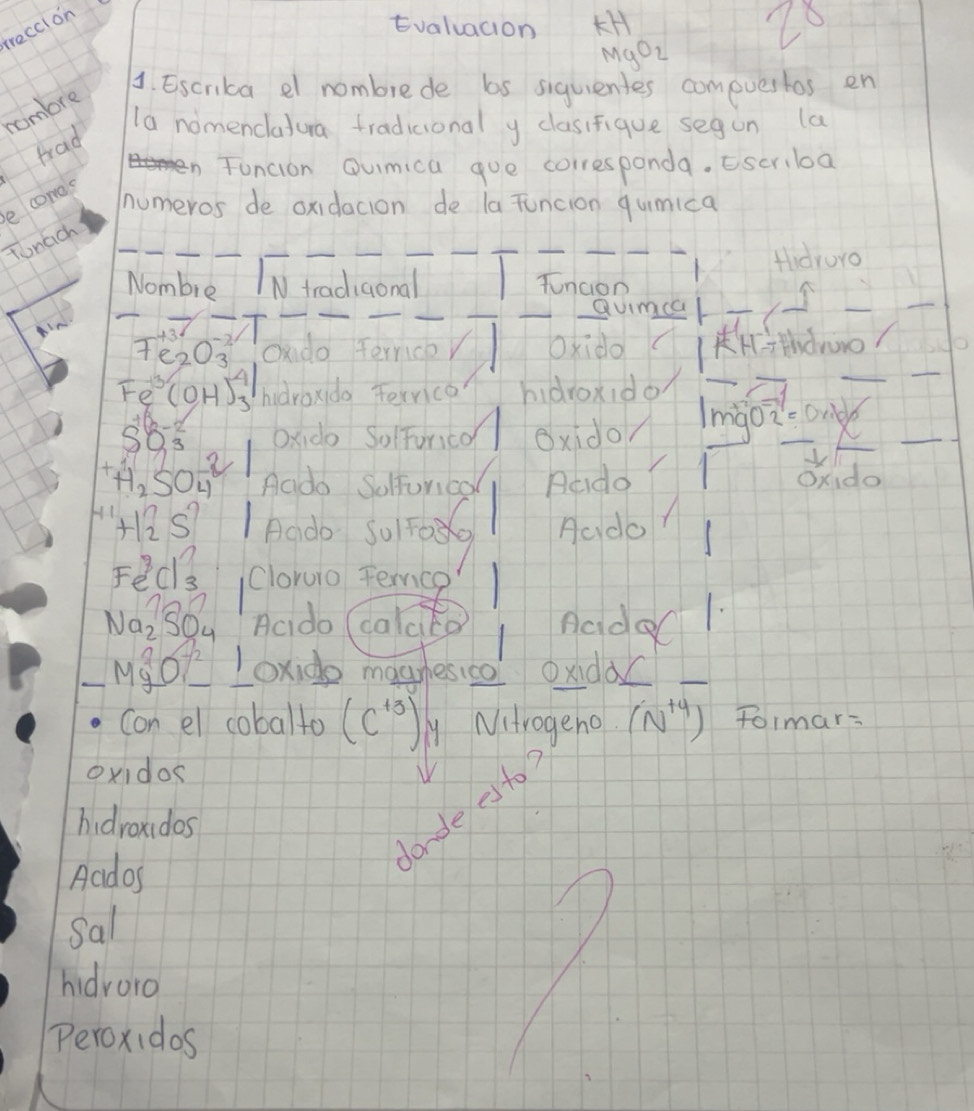 rrección
nombre
trad
Función
Evaluacion
KH
MgO2
28
1. Escriba el nombre de los siguientes compuestos en
la nomenclatura tradicional y clasifique segun la
Funcion Quimica que corresponda. Escriba
numeros de oxidacion de la Funcion quimica
Nombre | N tradicional | Funcion Quimica
Hidruro
Fe2+3O3-2 | Oxido Ferrico | Oxido | KH = Hidruro
Fe+3(OH)3 | hidroxido Ferrico | hidroxido
MgO2 = Oxido
SO3-2 | Oxido Sulfurico | Oxido
Oxido
H2SO4-2 | Acido Sulfurico | Acido
+1H2S | Acido Sulfoso | Acido
FeCl3 | Cloruro Ferrico
Na2SO4 | Acido calcito | Acido
MgO-2 | oxido magnesico | oxido
• Con el cobalto (C+3) y Nitrogeno (N+4) Formar=
oxidos
donde esto?
hidroxidos
Acidos
Sal
hidruro
Peroxidos
?